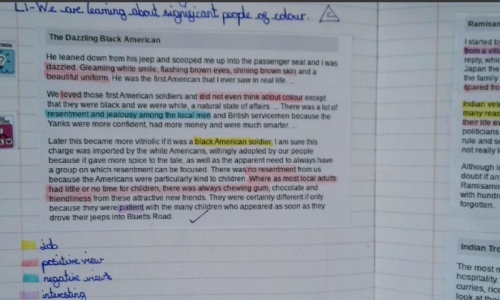 LI-We are learning about significant people of colour.
The Dazzling Black American
He leaned down from his jeep and scooped me up into the passenger seat and I was
dazzled. Gleaming white smile, flashing brown eyes, shining brown skin and a
beautiful uniform. He was the first American that I ever saw in real life. ...
We loved those first American soldiers and did not even think about colour except
that they were black and we were white, a natural state of affairs. ... There was a lot of
resentment and jealousy among the local men and British servicemen because the
Yanks were more confident, had more money and were much smarter. ...
Later this became more vitriolic if it was a black American soldier, I am sure this
charge was imported by the white Americans, willingly adopted by our people
because it gave more spice to the tale, as well as the apparent need to always have
a group on which resentment can be focused. There was no resentment from us
because the Americans were particularly kind to children. Where as most local adults
had little or no time for children, there was always chewing gum, chocolate and
friendliness from these attractive new friends. They were certainly different if only
because they were patient with the many children who appeared as soon as they
drove their jeeps into Bluetts Road.
job
positive view
negative views
interesting
Ramisam
I started by
from a villa
reply, which
Japan the
the families
spared from
Indian ve
many reas
their life ex
politicians
rule and se
not really k
Although
doubt if an
Ramisami
with hundr
forgotten.
Indian Tro
The most m
hospitality.
curries, rice
look at the